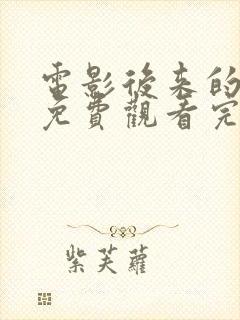 電影後來的
免費觀看完
紫芙蘿